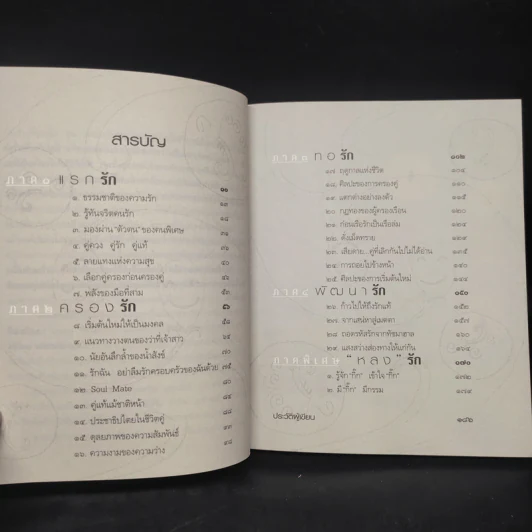 สารบัญ
ภาค๑ แรกรัก ๑๑
๑. ธรรมชาติของความรัก ๑๒
๒. รู้ทันจริตคนรัก ๑๘
๓. มองผ่าน "ตัวตน" ของคนพิเศษ
๔. คู่ควง คู่รัก คู่แท้
๕. ลายแทงแห่งความสุข
๖. เลือกคู่ครองก่อนครองคู่
๗. พลังของมือที่สาม
ภาค๒ ครองรัก
๘. เริ่มต้นใหม่ให้เป็นมงคล
๙. แนวทางวางตนของว่าที่เจ้าสาว
๑๐. นัยอันลึกล้ำของน้ำสังข์
๑๑. รักฉัน อย่าลืมรักครอบครัวของฉันด้วย ๗๕
๑๒. Soul Mate
๑๓. คู่แท้แม้ชาติหน้า
๑๔. ประชาธิปไตยในชีวิตคู่
๑๕. ดุลยภาพของความสัมพันธ์
๑๖. ความงามของความว่าง
ภาค๓ ทอรัก ๑๐๒
๑๗. ฤดูกาลแห่งชีวิต ๑๐๔
๑๘. ศิลปะของการครองคู่ ๑๑๐
๑๙. แตกต่างอย่างลงตัว ๑๑๕
๒๐. กฎทองของผู้ครองเรือน ๑๒๐
๒๑. ก่อนเรือรักเป็นเรือล่ม
๒๒. คั่งเม็ดทราย
๒๓. เสียดาย...คู่ที่เลิกกันไปไม่ได้อ่าน
๒๔. การถอยไปข้างหน้า
๒๕. ศิลปะของการเริ่มต้นใหม่
ภาค๔ พัฒนารัก ๑๕๐
๒๖. ก้าวไปให้ถึงรักแท้ ๑๕๒
๒๗. จากเสน่หาสู่เมตตา ๑๕๗
๒๘. ถอดรหัสรักจากทัชมาฮาล
๒๙. แสงสว่างส่องทางให้แก่กัน
ภาคพิเศษ "หลง" รัก ๑๗๐
๑. รู้จัก "กิ๊ก" เข้าใจ "กิ๊ก" ๑๗๒
๒. มี "กิ๊ก" มีกรรม ๑๗๘
ประวัติผู้เขียน ๑๘๖